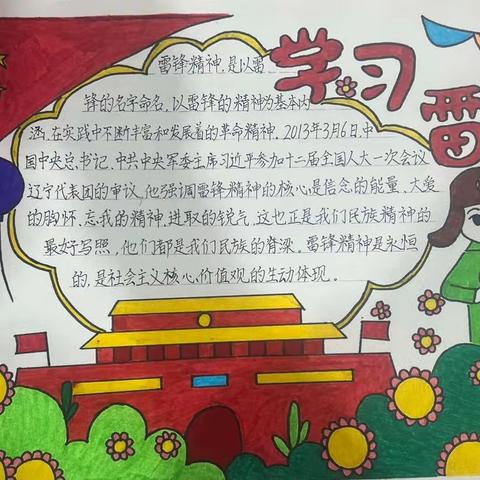 学习
雷
雷锋精神,是以雷
锋的名字命名,以雷锋的精神为基本内
涵,在实践中不断丰富和发展着的革命精神.2013年3月6日,中
国中央总书记、中共中央军委主席习近平参加十二届全国人大一次会议
辽宁代表团的审议,他强调雷锋精神的核心是信念的能量、大爱
的胸怀、忘我的精神、进取的锐气,这也正是我们民族精神的
最好写照,他们都是我们民族的脊梁。雷锋精神是永恒
的,是社会主义核心价值观的生动体现。